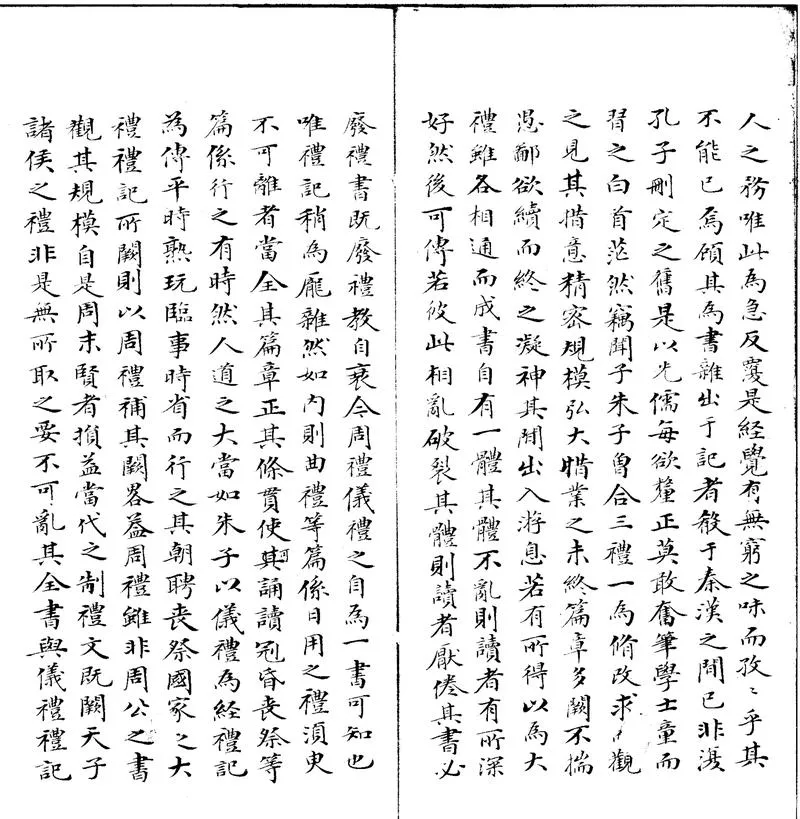 人之務唯此為急反覆是經覺有無窮之味而孜〻乎其
不能已焉頋其為書雜出于記者殽于秦漢之間已非復
孔子刪定之舊是以先儒每欲釐正莫敢奮筆學士童而
習之白首茫然竊聞子朱子曾合三禮一為脩改求觀
之見其措意精密規模弘大惜業之未終篇章多闕不揣
愚鄙欲續而終之凝神其間出入游息若有所得以為大
禮雖各相通而成書自有一體其體不亂則讀者有所深
好然後可傳若彼此相亂破裂其體則讀者厭倦其書必
廢禮書既廢禮教自衰今周禮儀禮之自為一書可知也
唯禮記稍為龐雜然如內則曲禮等篇係日用之禮須臾
不可離者當全其篇章正其條貫使其可誦讀冠昏喪祭等
篇係行之有時然人道之大當如朱子以儀禮為經禮記
為傳平時熟玩臨事時省而行之其朝聘喪祭國家之大
禮禮記所闕則以周禮補其闕畧益周禮雖非周公之書
觀其規模自是周末賢者損益當代之制禮文既闕天子
諸侯之禮非是無所取之要不可亂其全書與儀禮禮記